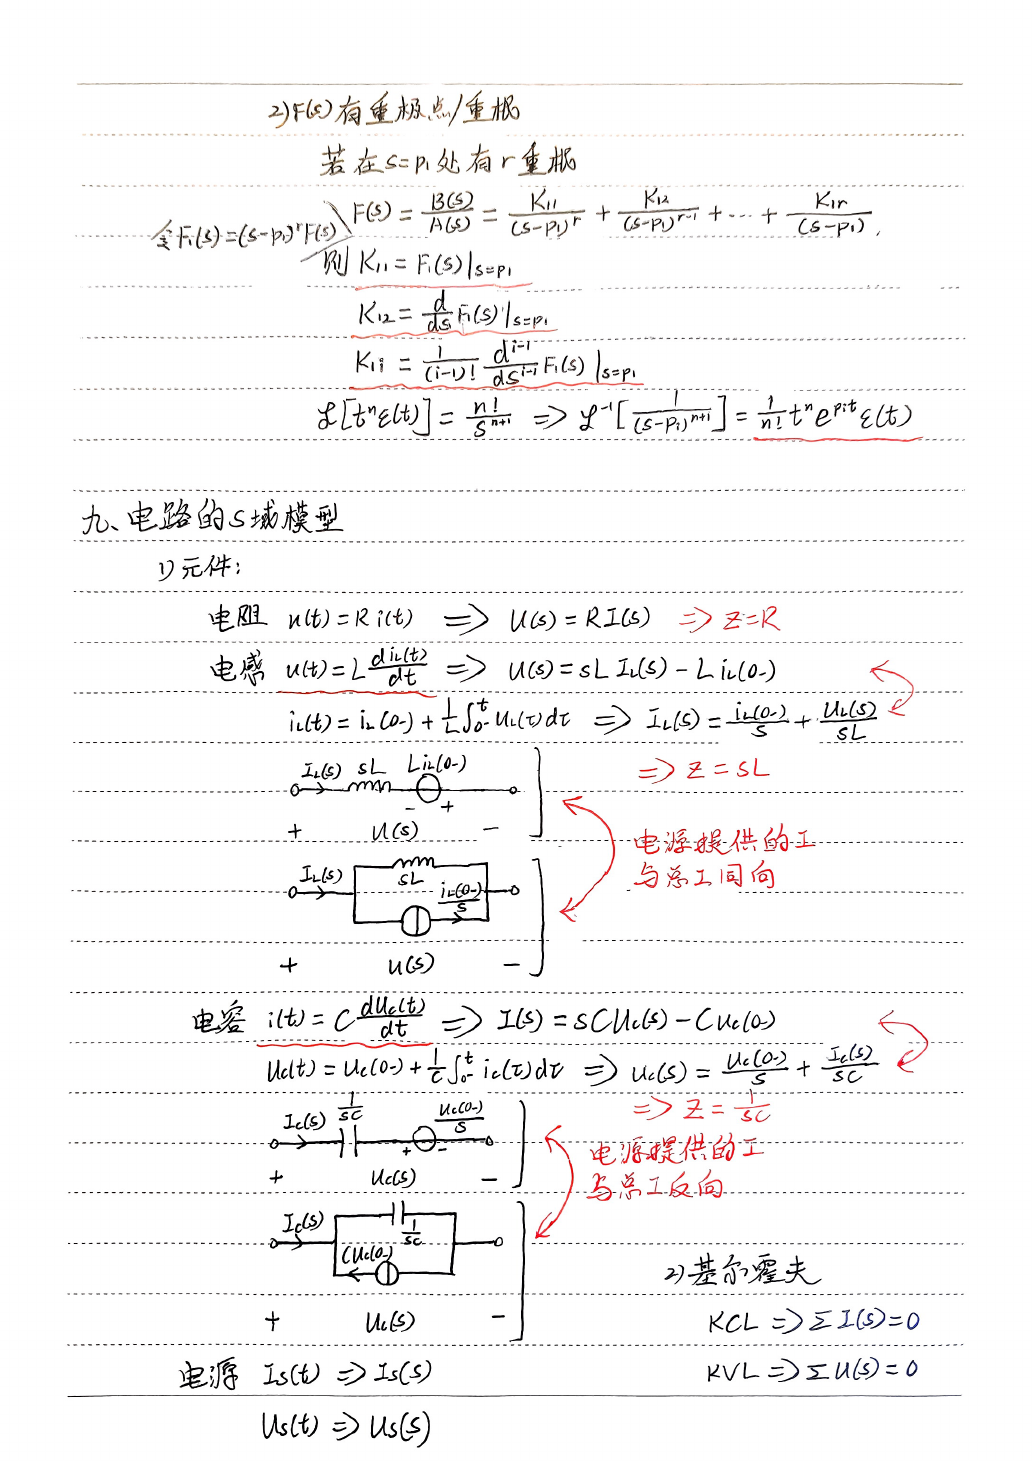 2) F(s)有重极点/重根
若在s=p₁处有r重根
F(s) = B(s)/A(s) = K₁₁/(s-p₁)^r + K₁₂/(s-p₁)^(r-1) + … + K₁r/(s-p₁),
令F₁(s)=(s-p₁)^r F(s)
则 K₁₁ = F₁(s)|s=p₁
K₁₂ = d/ds F₁(s)|s=p₁
K₁i = 1/(i-1)! d^(i-1)/ds^(i-1) F₁(s)|s=p₁
ℒ[tⁿε(t)] = n!/s^(n+1) => ℒ⁻¹[1/(s-p₁)^(n+1)] = 1/n! tⁿ e^(p₁t) ε(t)
九、电路的s域模型
1) 元件:
电阻 u(t)=Ri(t) => U(s)=RI(s) => Z=R
电感 u(t)=L diL(t)/dt => U(s)=sLIL(s)-LiL(0-)
iL(t)=iL(0-)+1/L∫₀₋ᵗ uL(τ)dτ => IL(s)=iL(0-)/s+UL(s)/sL
IL(s) sL LiL(0-)
=> Z=sL
- +
+ U(s) -
电源提供的I
与总I同向
IL(s) sL iL(0-)/s
+ U(s) -
电容 i(t)=C duc(t)/dt => I(s)=sCUc(s)-Cuc(0-)
uc(t)=uc(0-)+1/C∫₀₋ᵗ ic(τ)dτ => Uc(s)=uc(0-)/s+Ic(s)/sC
=> Z=1/sC
Ic(s) 1/sC uc(0-)/s
+ -
电源提供的I
与总I反向
+ Uc(s) -
Ic(s) 1/sC
Cuc(0-)
+ Uc(s) -
2) 基尔霍夫
KCL => ΣI(s)=0
KVL => ΣU(s)=0
电源 Is(t) => Is(s)
Us(t) => Us(s)